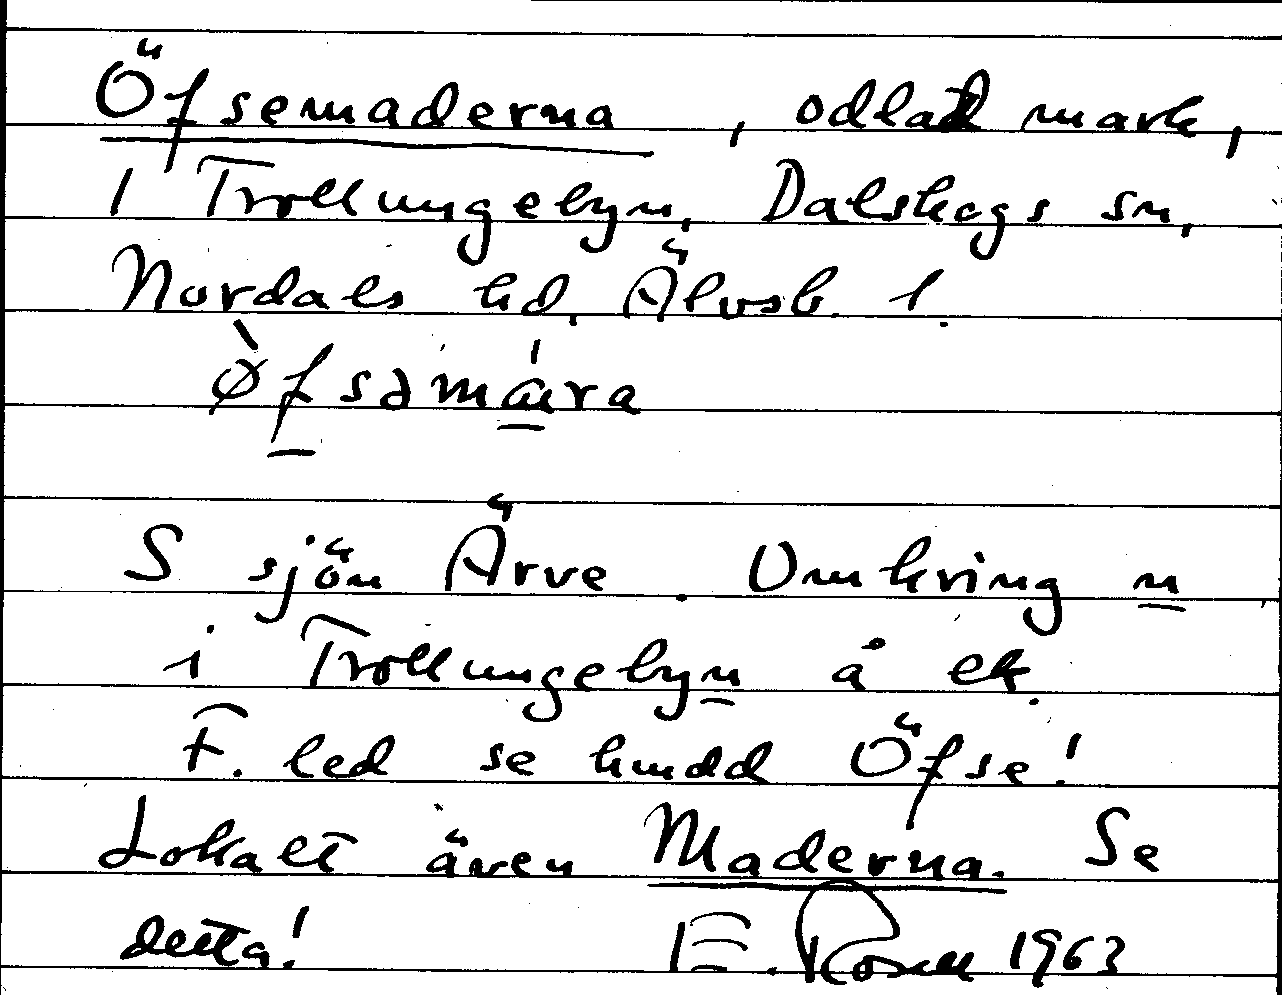 Öfsemaderna, odlad mark,
i Trollungebyn, Dalskogs sn,
Nordals hd, Älvsb. l.
S sjön Ärve. Omkring n
i Trollungebyn å ek.
F. led se hmdd Öfse!
Lokalt även Maderna. Se
detta! E. Rosell 1963